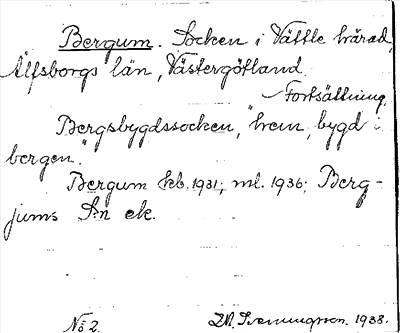 Bergum. Socken i Vättle härad,
Älfsborgs län, Västergötland
Fortsättning.
"Bergsbygdssocken," hem, bygd i
bergen."
Bergum kb. 1931; ml. 1936; Berg-
jums Sn ek.
No 2. Sveningsson. 1938.